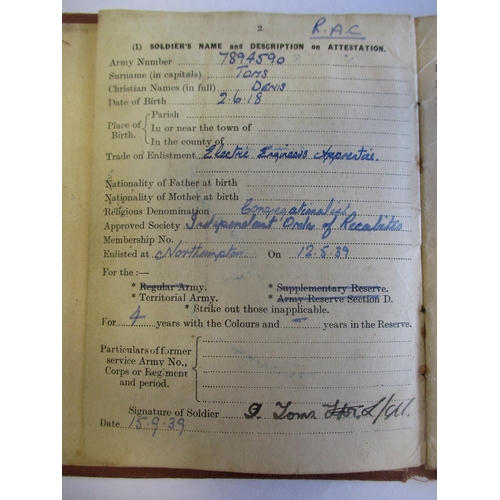 2
R.A.C
(1) SOLDIER'S NAME and DESCRIPTION on ATTESTATION.
Army Number 7894590
Surname (in capitals) TOMS
Christian Names (in full) DENIS
Date of Birth 2.6.18
Place of Birth. Parish
In or near the town of
In the county of
Trade on Enlistment Electric Engineers Apprentice.
Nationality of Father at birth
Nationality of Mother at birth
Religious Denomination Congregationalist
Approved Society Independent Order of Recabites
Membership No.
Enlisted at Northampton On 12.5.39
For the :—
* Regular Army. * Supplementary Reserve.
* Territorial Army. * Army Reserve Section D.
* Strike out those inapplicable.
For 4 years with the Colours and – years in the Reserve.
Particulars of former service Army No., Corps or Regiment and period.
Signature of Soldier D. Toms L/Cpl.
Date 15.9.39